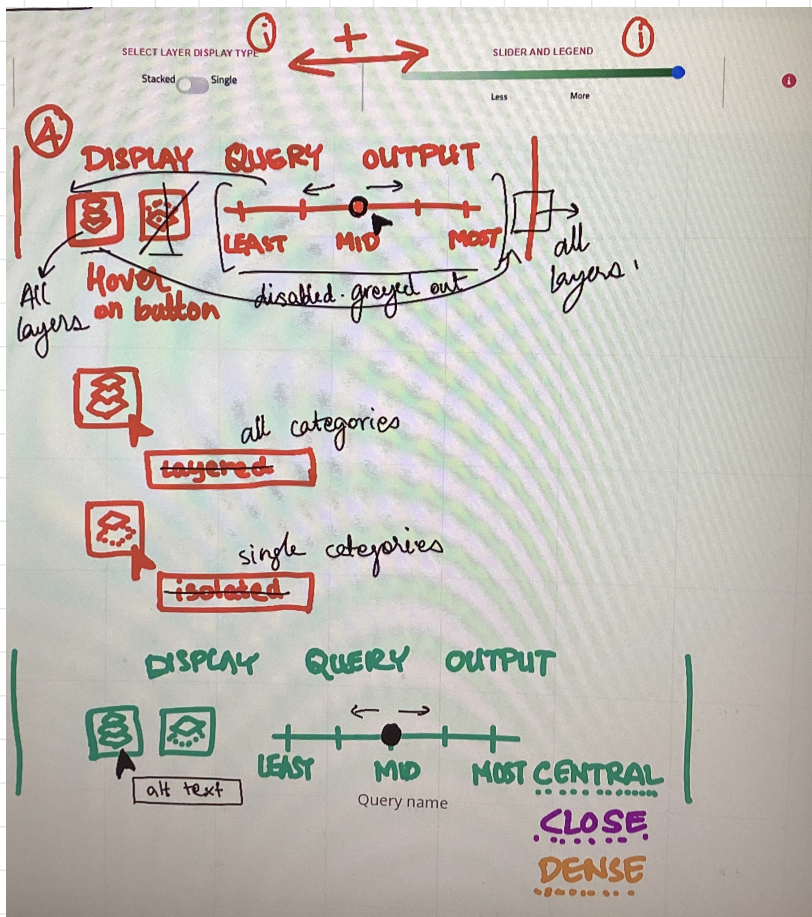 SELECT LAYER DISPLAY TYPE i + SLIDER AND LEGEND i
Stacked Single
Less More
A
DISPLAY QUERY OUTPUT
LEAST MID MOST
all
layers
All
layers
Hover
on button
disabled. greyed out
all categories
layered
single categories
isolated
DISPLAY QUERY OUTPUT
LEAST MID MOST CENTRAL
alt text
Query name
CLOSE
DENSE